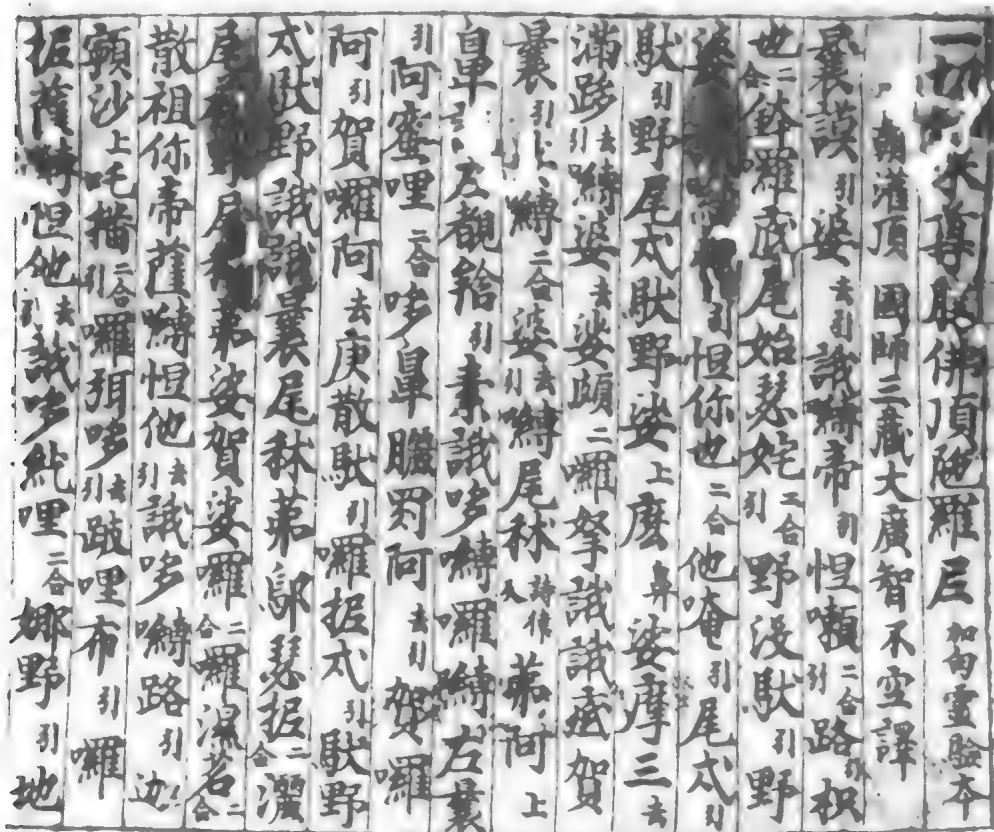 一切來尊勝佛頂陁羅尼加句靈驗本
朝灌頂國師三藏大廣智不空譯
曩謨引婆去引誐嚩帝引怛嚩二合引路枳
也二合鉢囉底尾始瑟姹二合引野沒馱引野
婆引怛你也二合他唵引尾戍引
馱引野尾戍馱野娑上麼鼻娑摩三去
滿跢去引嚩婆去娑頗二囉拏誐誐底賀
曩引嚩二合婆去引嚩尾秫詩律入弟阿上
鼻左覩給引素誐哆嚩囉嚩左曩
引阿蜜哩二合哆鼻朣罽阿去引賀囉
阿引賀囉阿去庾散馱引囉抳戍引馱野
戍馱引野誐誐曩尾秫弟鄔瑟抳二合灑
尾尾秫弟娑賀娑囉二合囉濕茗二合
散祖你帝薩嚩怛他去引誐哆嚩路引迦
顊沙上吒橎二合引囉弭哆去引跛哩布引囉
抳薩嚩怛他去引誐哆紇哩二合娜野引地